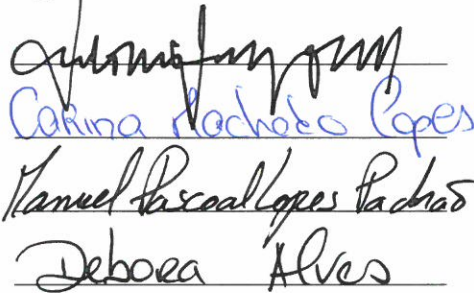 Carina Machado Lopes
Manuel Pascoal Lopes Pachão
Debora Alves